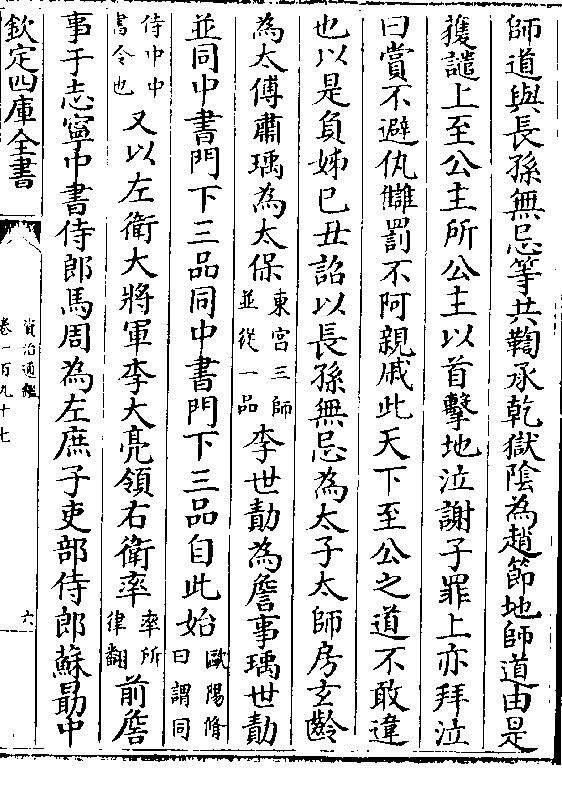 師道與長孫無忌等共鞫承乾獄陰為趙節地師道由是
獲譴上至公主所公主以首擊地泣謝子罪上亦拜泣
曰賞不避仇讎罰不阿親戚此天下至公之道不敢違
也以是負姊已丑詔以長孫無忌為太子太師房玄齡
為太傅蕭瑀為太保東宮三師並從一品李世勣為詹事瑀世勣
並同中書門下三品同中書門下三品自此始歐陽脩曰謂同
侍中中書令也又以左衛大將軍李大亮領右衛率率所律翻前詹
事于志寧中書侍郎馬周為左庶子吏部侍郎蘇勗中
欽定四庫全書
資治通鑑
卷一百九十七
六